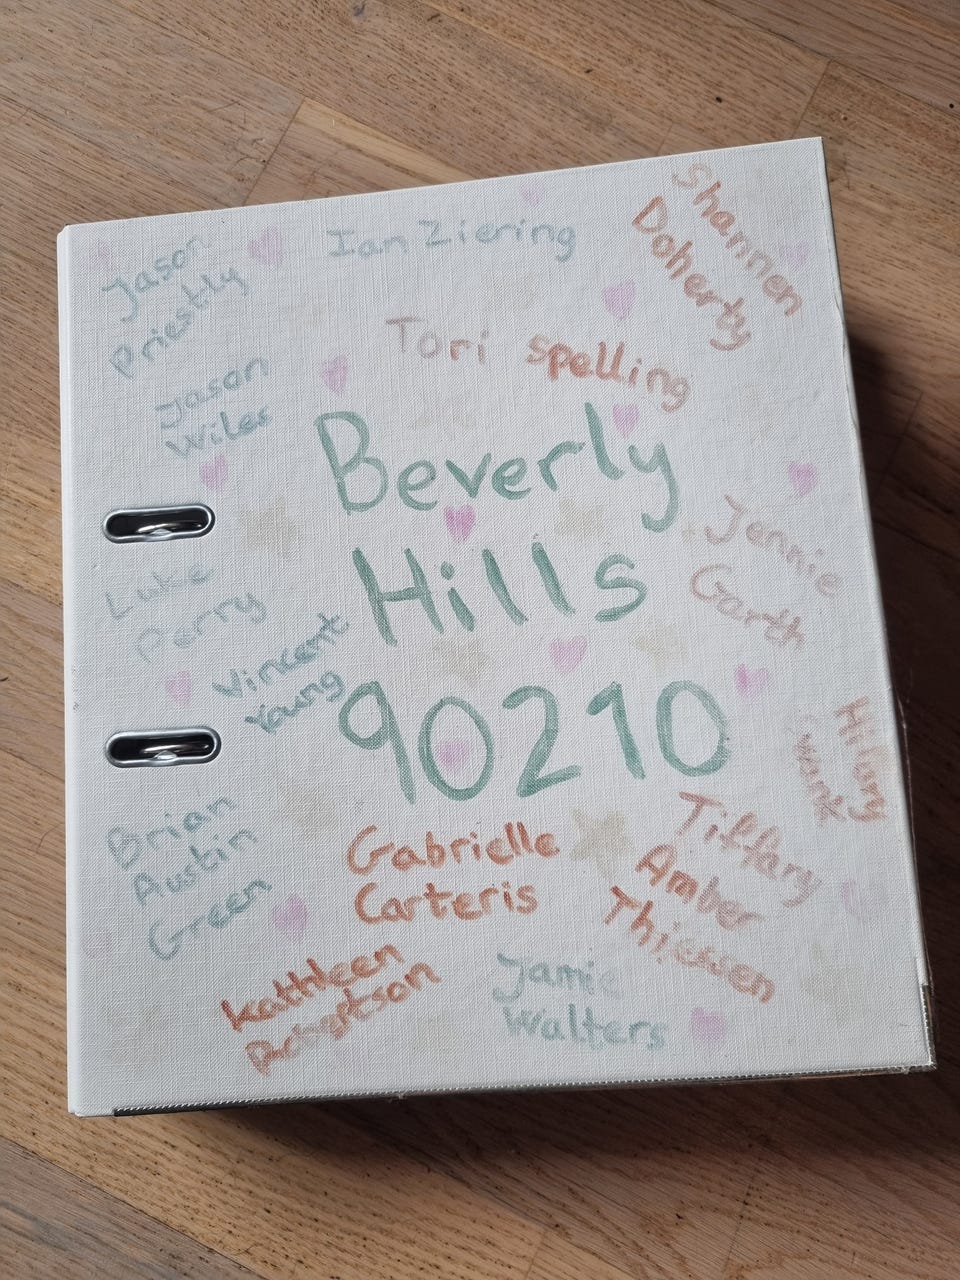 Jason
Priestly
Ian Ziering
Shannen
Doherty
Tori spelling
Jason
Wiles
Beverly
Hills
90210
Jennie
Garth
Luke
Perry
Vincent
Young
Hilary
Swank
Brian
Austin
Green
Gabrielle
Carteris
Tiffany
Amber
Thiessen
Kathleen
Robertson
Jamie
Walters